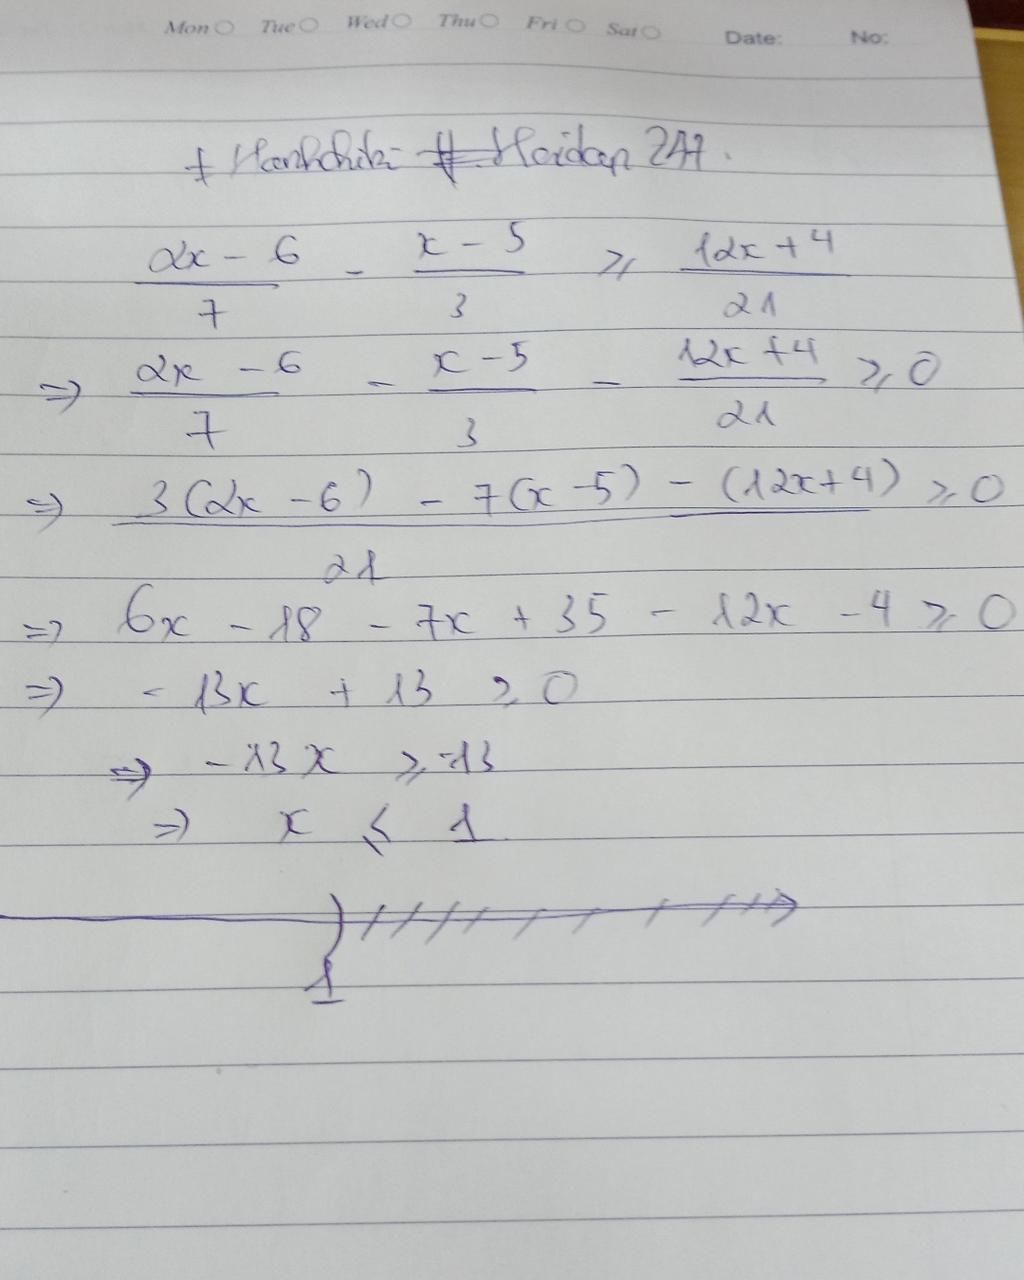 Mon Tue Wed Thu Fri Sat Date: No:
2x - 6 / 7 - x - 5 / 3 ⩾ 12x + 4 / 21
=> 2x - 6 / 7 - x - 5 / 3 - 12x + 4 / 21 ⩾ 0
=> 3(2x - 6) - 7(x - 5) - (12x + 4) / 21 ⩾ 0
=> 6x - 18 - 7x + 35 - 12x - 4 ⩾ 0
=> - 13x + 13 ⩾ 0
=> - 13x ⩾ -13
=> x ⩽ 1
1